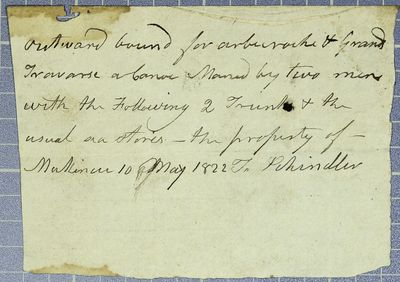 outward bound for arbecroche & Grand
Travarse a Canoe Maned by two men
with the Following 2 Trunks & the
usual sea Stores — the property of —
Makinac 10 May 1822 Ts Schindler